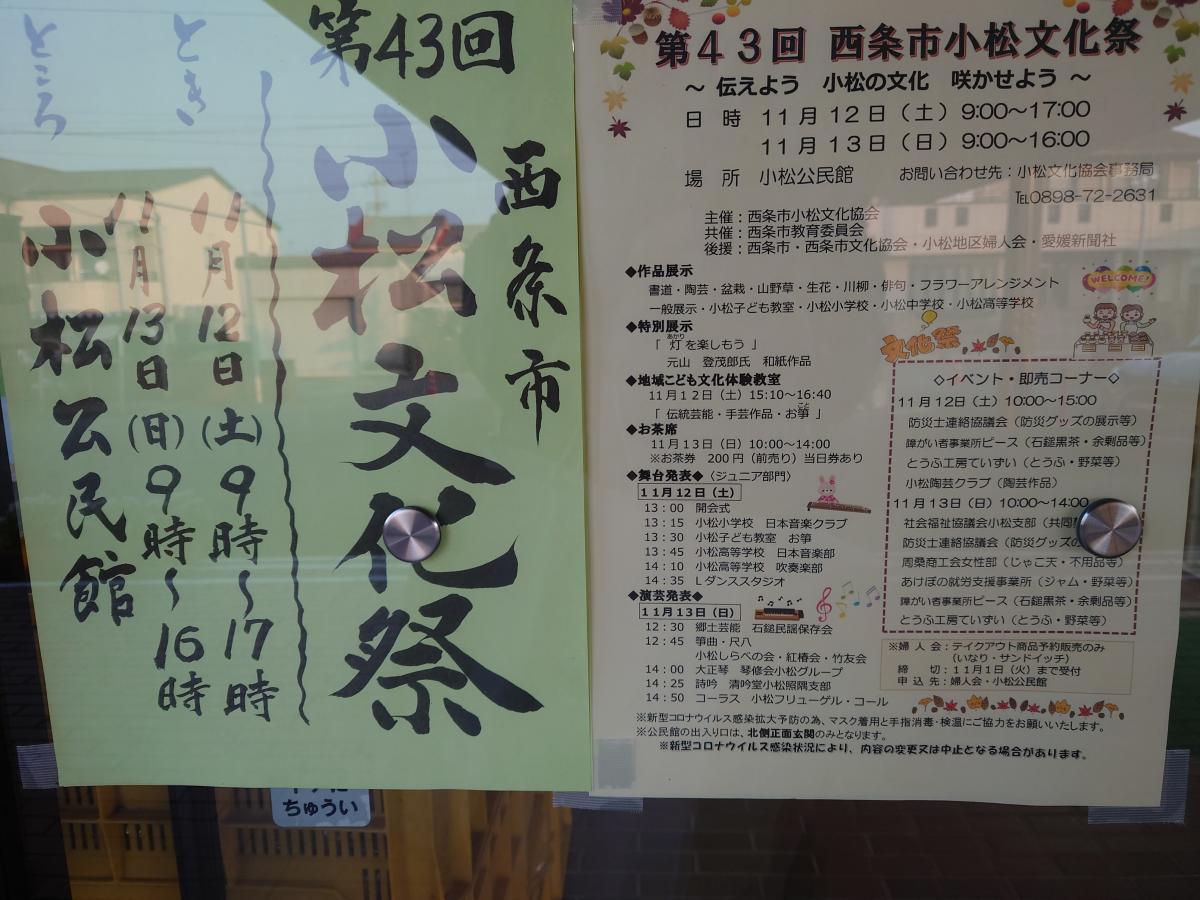 第43回
西条市
小松文化祭
とき
11月12日(土)9時～17時
11月13日(日)9時～16時
ところ
小松公民館
ちゅうい
第43回 西条市小松文化祭
～ 伝えよう 小松の文化 咲かせよう ～
日 時 11月12日(土)9:00～17:00
11月13日(日)9:00～16:00
場 所 小松公民館 お問い合わせ先：小松文化協会事務局
℡0898-72-2631
主催：西条市小松文化協会
共催：西条市教育委員会
後援：西条市・西条市文化協会・小松地区婦人会・愛媛新聞社
◆作品展示
書道・陶芸・盆栽・山野草・生花・川柳・俳句・フラワーアレンジメント
一般展示・小松子ども教室・小松小学校・小松中学校・小松高等学校
WELCOME!
◆特別展示
「 灯(あかり)を楽しもう 」
元山 登茂郎氏 和紙作品
文化祭
◆地域こども文化体験教室
11月12日(土)15:10～16:40
「 伝統芸能・手芸作品・お箏(こと) 」
◆お茶席
11月13日(日)10:00～14:00
※お茶券 200円(前売り)当日券あり
◆舞台発表◆〈ジュニア部門〉
11月12日(土)
13：00 開会式
13：15 小松小学校 日本音楽クラブ
13：30 小松子ども教室 お箏
13：45 小松高等学校 日本音楽部
14：10 小松高等学校 吹奏楽部
14：35 Ｌダンススタジオ
◆演芸発表◆
11月13日(日)
12：30 郷土芸能 石鎚民謡保存会
12：45 箏曲・尺八
小松しらべの会・紅椿会・竹友会
14：00 大正琴 琴修会小松グループ
14：25 詩吟 清吟堂小松照隅支部
14：50 コーラス 小松フリューゲル・コール
◇イベント・即売コーナー◇
11月12日(土)10:00～15:00
防災士連絡協議会(防災グッズの展示等)
障がい者事業所ピース(石鎚黒茶・余剰品等)
とうふ工房ていずい(とうふ・野菜等)
小松陶芸クラブ(陶芸作品)
11月13日(日)10:00～14:00
社会福祉協議会小松支部(共同
防災士連絡協議会(防災グッズの
周桑商工会女性部(じゃこ天・不用品等)
あけぼの就労支援事業所(ジャム・野菜等)
障がい者事業所ピース(石鎚黒茶・余剰品等)
とうふ工房ていずい(とうふ・野菜等)
※婦 人 会：テイクアウト商品予約販売のみ
(いなり・サンドイッチ)
締 切：11月1日(火)まで受付
申 込 先：婦人会・小松公民館
※新型コロナウイルス感染拡大予防の為、マスク着用と手指消毒・検温にご協力をお願いいたします。
※公民館の出入り口は、北側正面玄関のみとなります。
※新型コロナウイルス感染状況により、内容の変更又は中止となる場合があります。